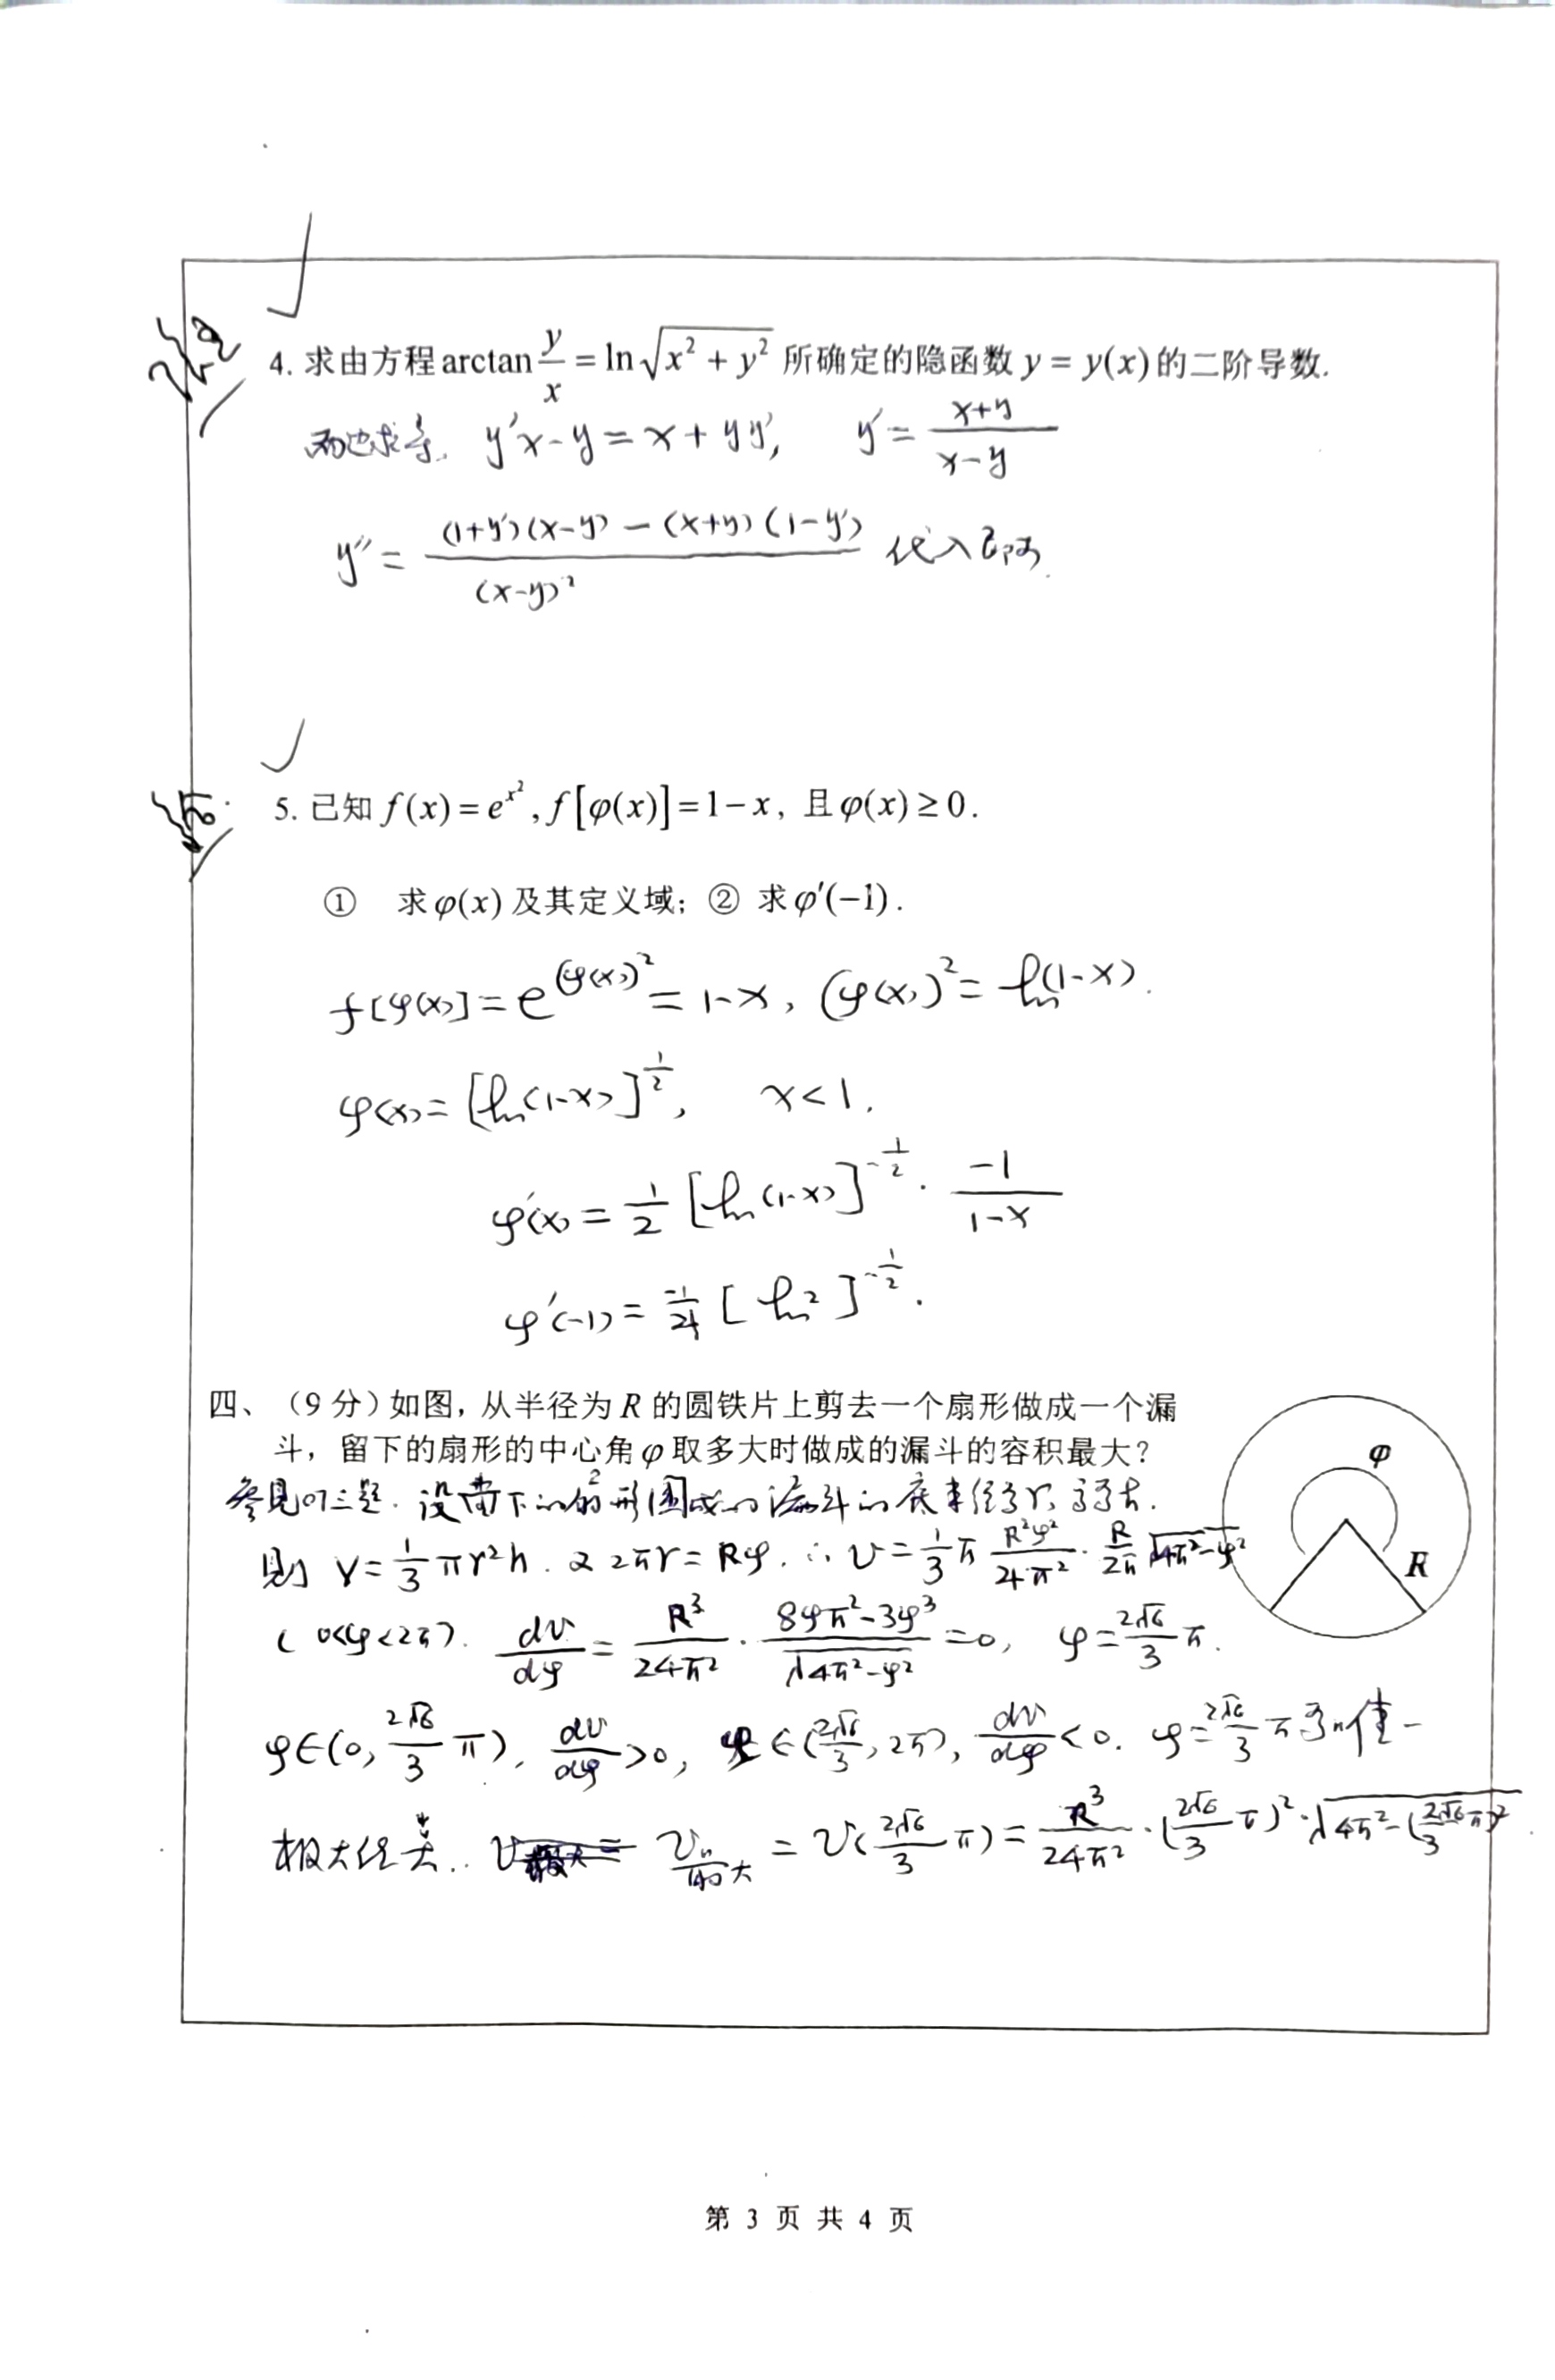 4. 求由方程 arctan y/x = ln√(x²+y²) 所确定的隐函数 y = y(x) 的二阶导数.
两边求导. y'x-y=x+yy', y'=(x+y)/(x-y)
y''=((1+y')(x-y)-(x+y)(1-y'))/(x-y)² 代入即可.
5. 已知 f(x)=e^(x²), f[φ(x)]=1-x, 且φ(x)≥0.
① 求φ(x)及其定义域; ② 求φ'(-1).
f[φ(x)]=e^((φ(x))²)=1-x, (φ(x))²=ln(1-x).
φ(x)=[ln(1-x)]^(1/2), x<1.
φ'(x)=1/2[ln(1-x)]^(-1/2)·(-1)/(1-x)
φ'(-1)=-1/4[ln2]^(-1/2).
四、(9分)如图, 从半径为R的圆铁片上剪去一个扇形做成一个漏
斗, 留下的扇形的中心角φ取多大时做成的漏斗的容积最大?
φ
R
参见07三题. 设留下的扇形围成的漏斗的底半径为r, 高为h.
则 V=1/3πr²h. 又2πr=Rφ. ∴V=1/3π R²φ²/4π²·R/2π √(4π²-φ²)
(0<φ<2π). dv/dφ=R³/24π²·(8φπ²-3φ³)/√(4π²-φ²)=0, φ=2√6/3π.
φ∈(0, 2√6/3π), dv/dφ>0, φ∈(2√6/3, 2π), dv/dφ<0. φ=2√6/3π为唯一
极大值点. =V(2√6/3π)=R³/24π²·(2√6/3π)²·√(4π²-(2√6/3π)²)
第 3 页 共 4 页